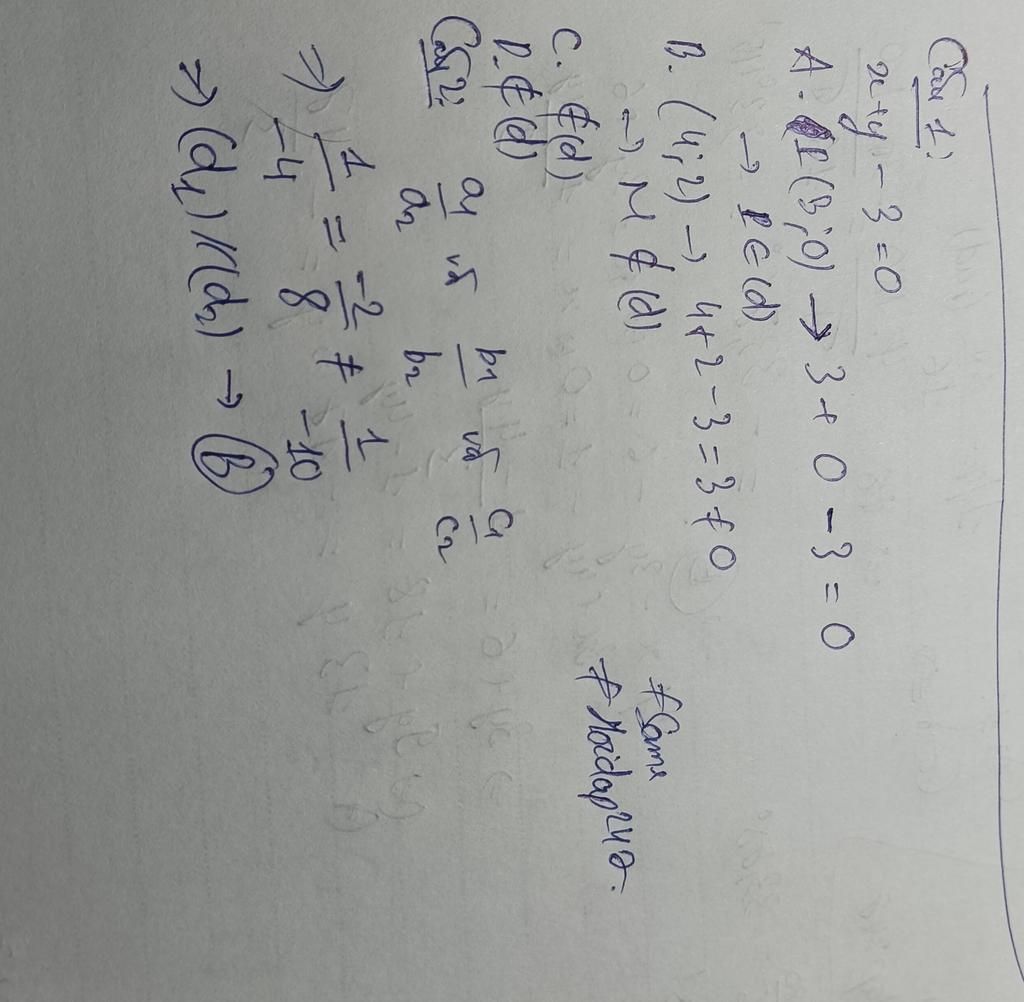 Câu 1:
x+y-3=0
A. I(3;0) → 3+0-3=0
→ I∈(d)
B. (4;2) → 4+2-3=3≠0
→ M∉(d)
C. ∉(d)
D. ∉(d)
Câu 2:
a1/a2 và b1/b2 và c1/c2
⇒ 1/-4 = -2/8 ≠ 1/-10
⇒ (d1)//(d2) → B
#Sama
#Hoidap247.